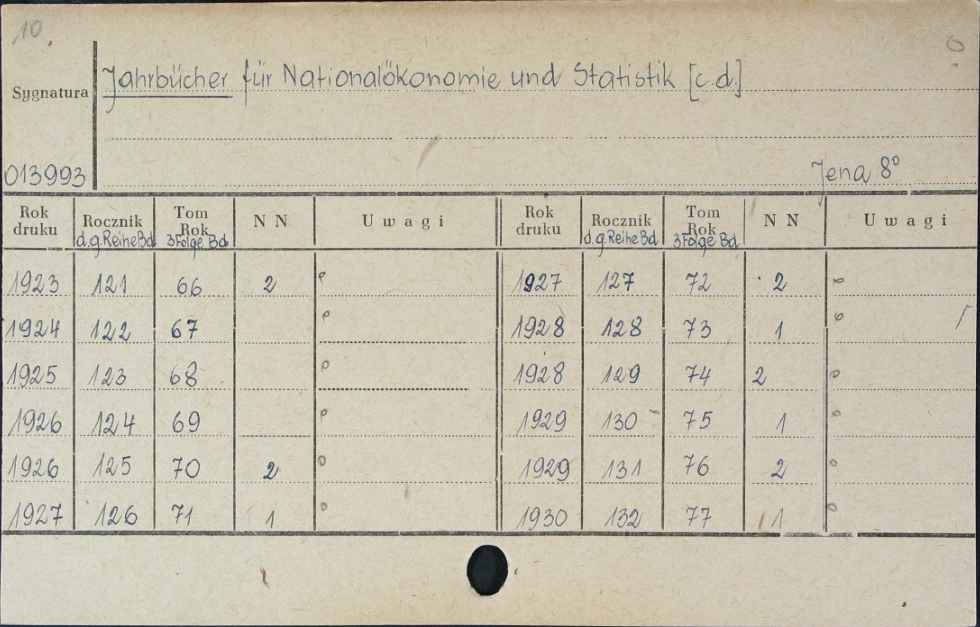 10.
Sygnatura
Jahrbücher für Nationalökonomie und Statistik [c.d.]
013993
Jena 8°
Rok druku | Rocznik d.g.Reihe Bd | Tom Rok 3 Folge Bd | N N | Uwagi | Rok druku | Rocznik d.g.Reihe Bd | Tom Rok 3 Folge Bd | N N | Uwagi
1923 | 121 | 66 | 2 | | 1927 | 127 | 72 | 2
1924 | 122 | 67 | | | 1928 | 128 | 73 | 1
1925 | 123 | 68 | | | 1928 | 129 | 74 | 2
1926 | 124 | 69 | | | 1929 | 130 | 75 | 1
1926 | 125 | 70 | 2 | | 1929 | 131 | 76 | 2
1927 | 126 | 71 | 1 | | 1930 | 132 | 77 | 1